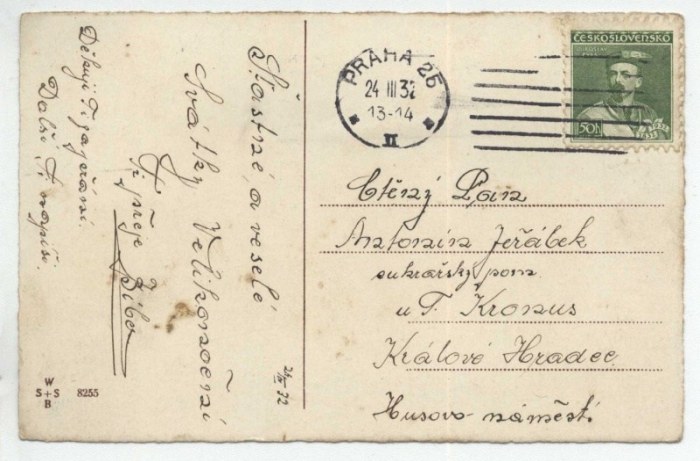 Šťastné, a veselé
Svátky Velikonoční
Ti přeje
Děkuji Ti za přání.
Dalše Ti napíši.
23/III 32
W
S+S 8255
B
PRAHA 25
24 III 32
13-14
II
ČESKOSLOVENSKO
50h
Ctěný Pan
Antonín Jeřábek
cukrářský pom.
u F. Kronus
Králové Hradec
Husovo náměstí